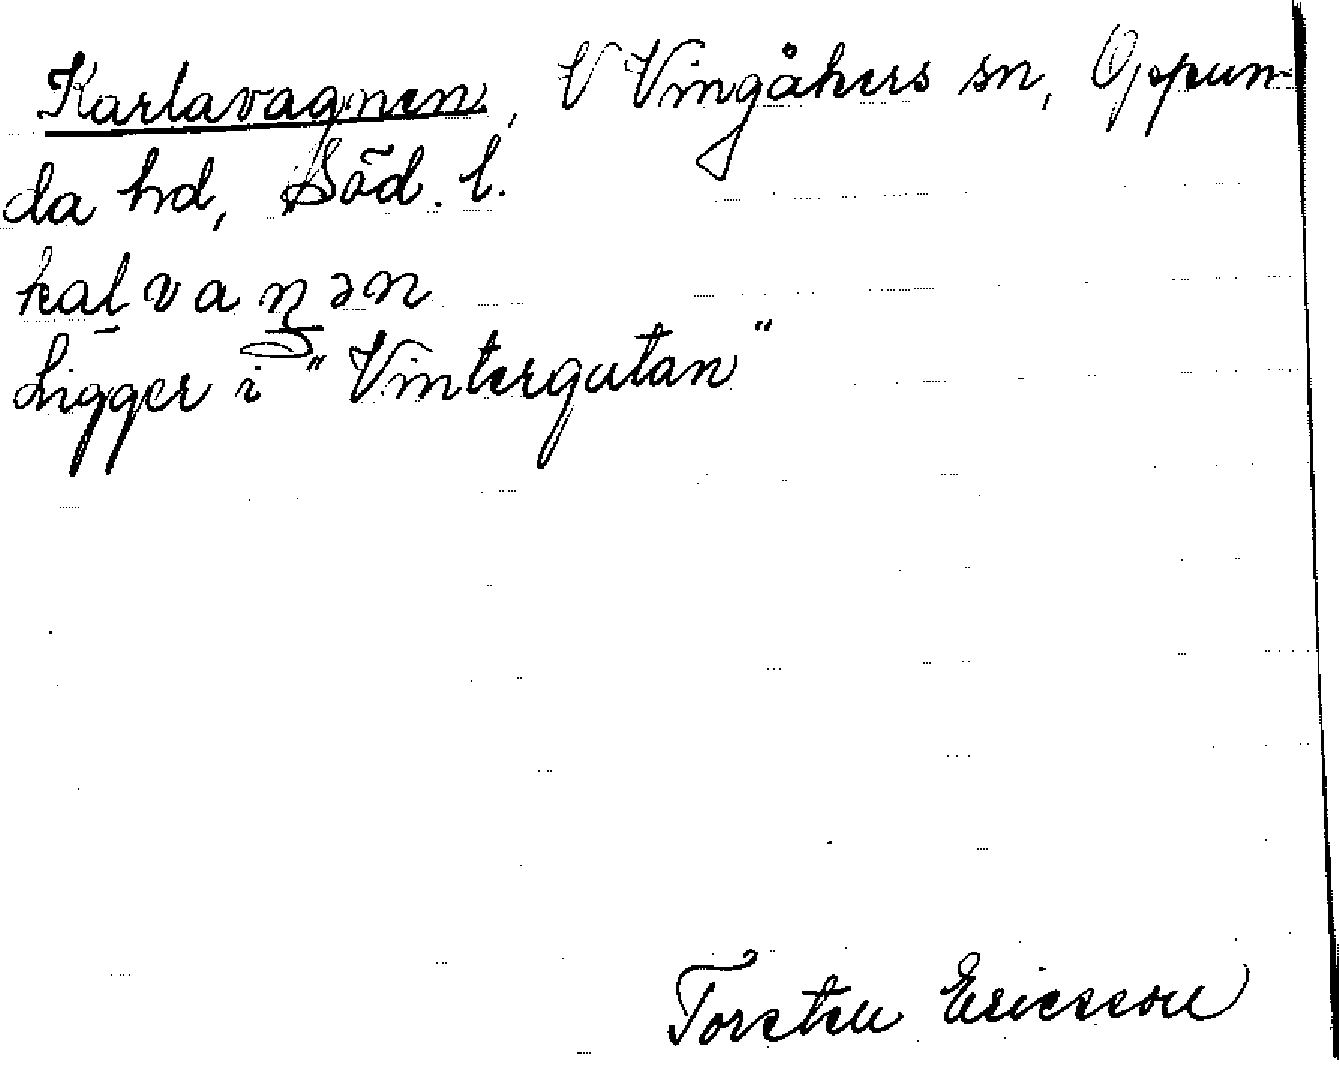 Karlavagnen, V Vingåkers sn, Oppun-
da hd, Söd. l.
kalvaŋən
Ligger i "Vintergatan"
Torsten Ericsson